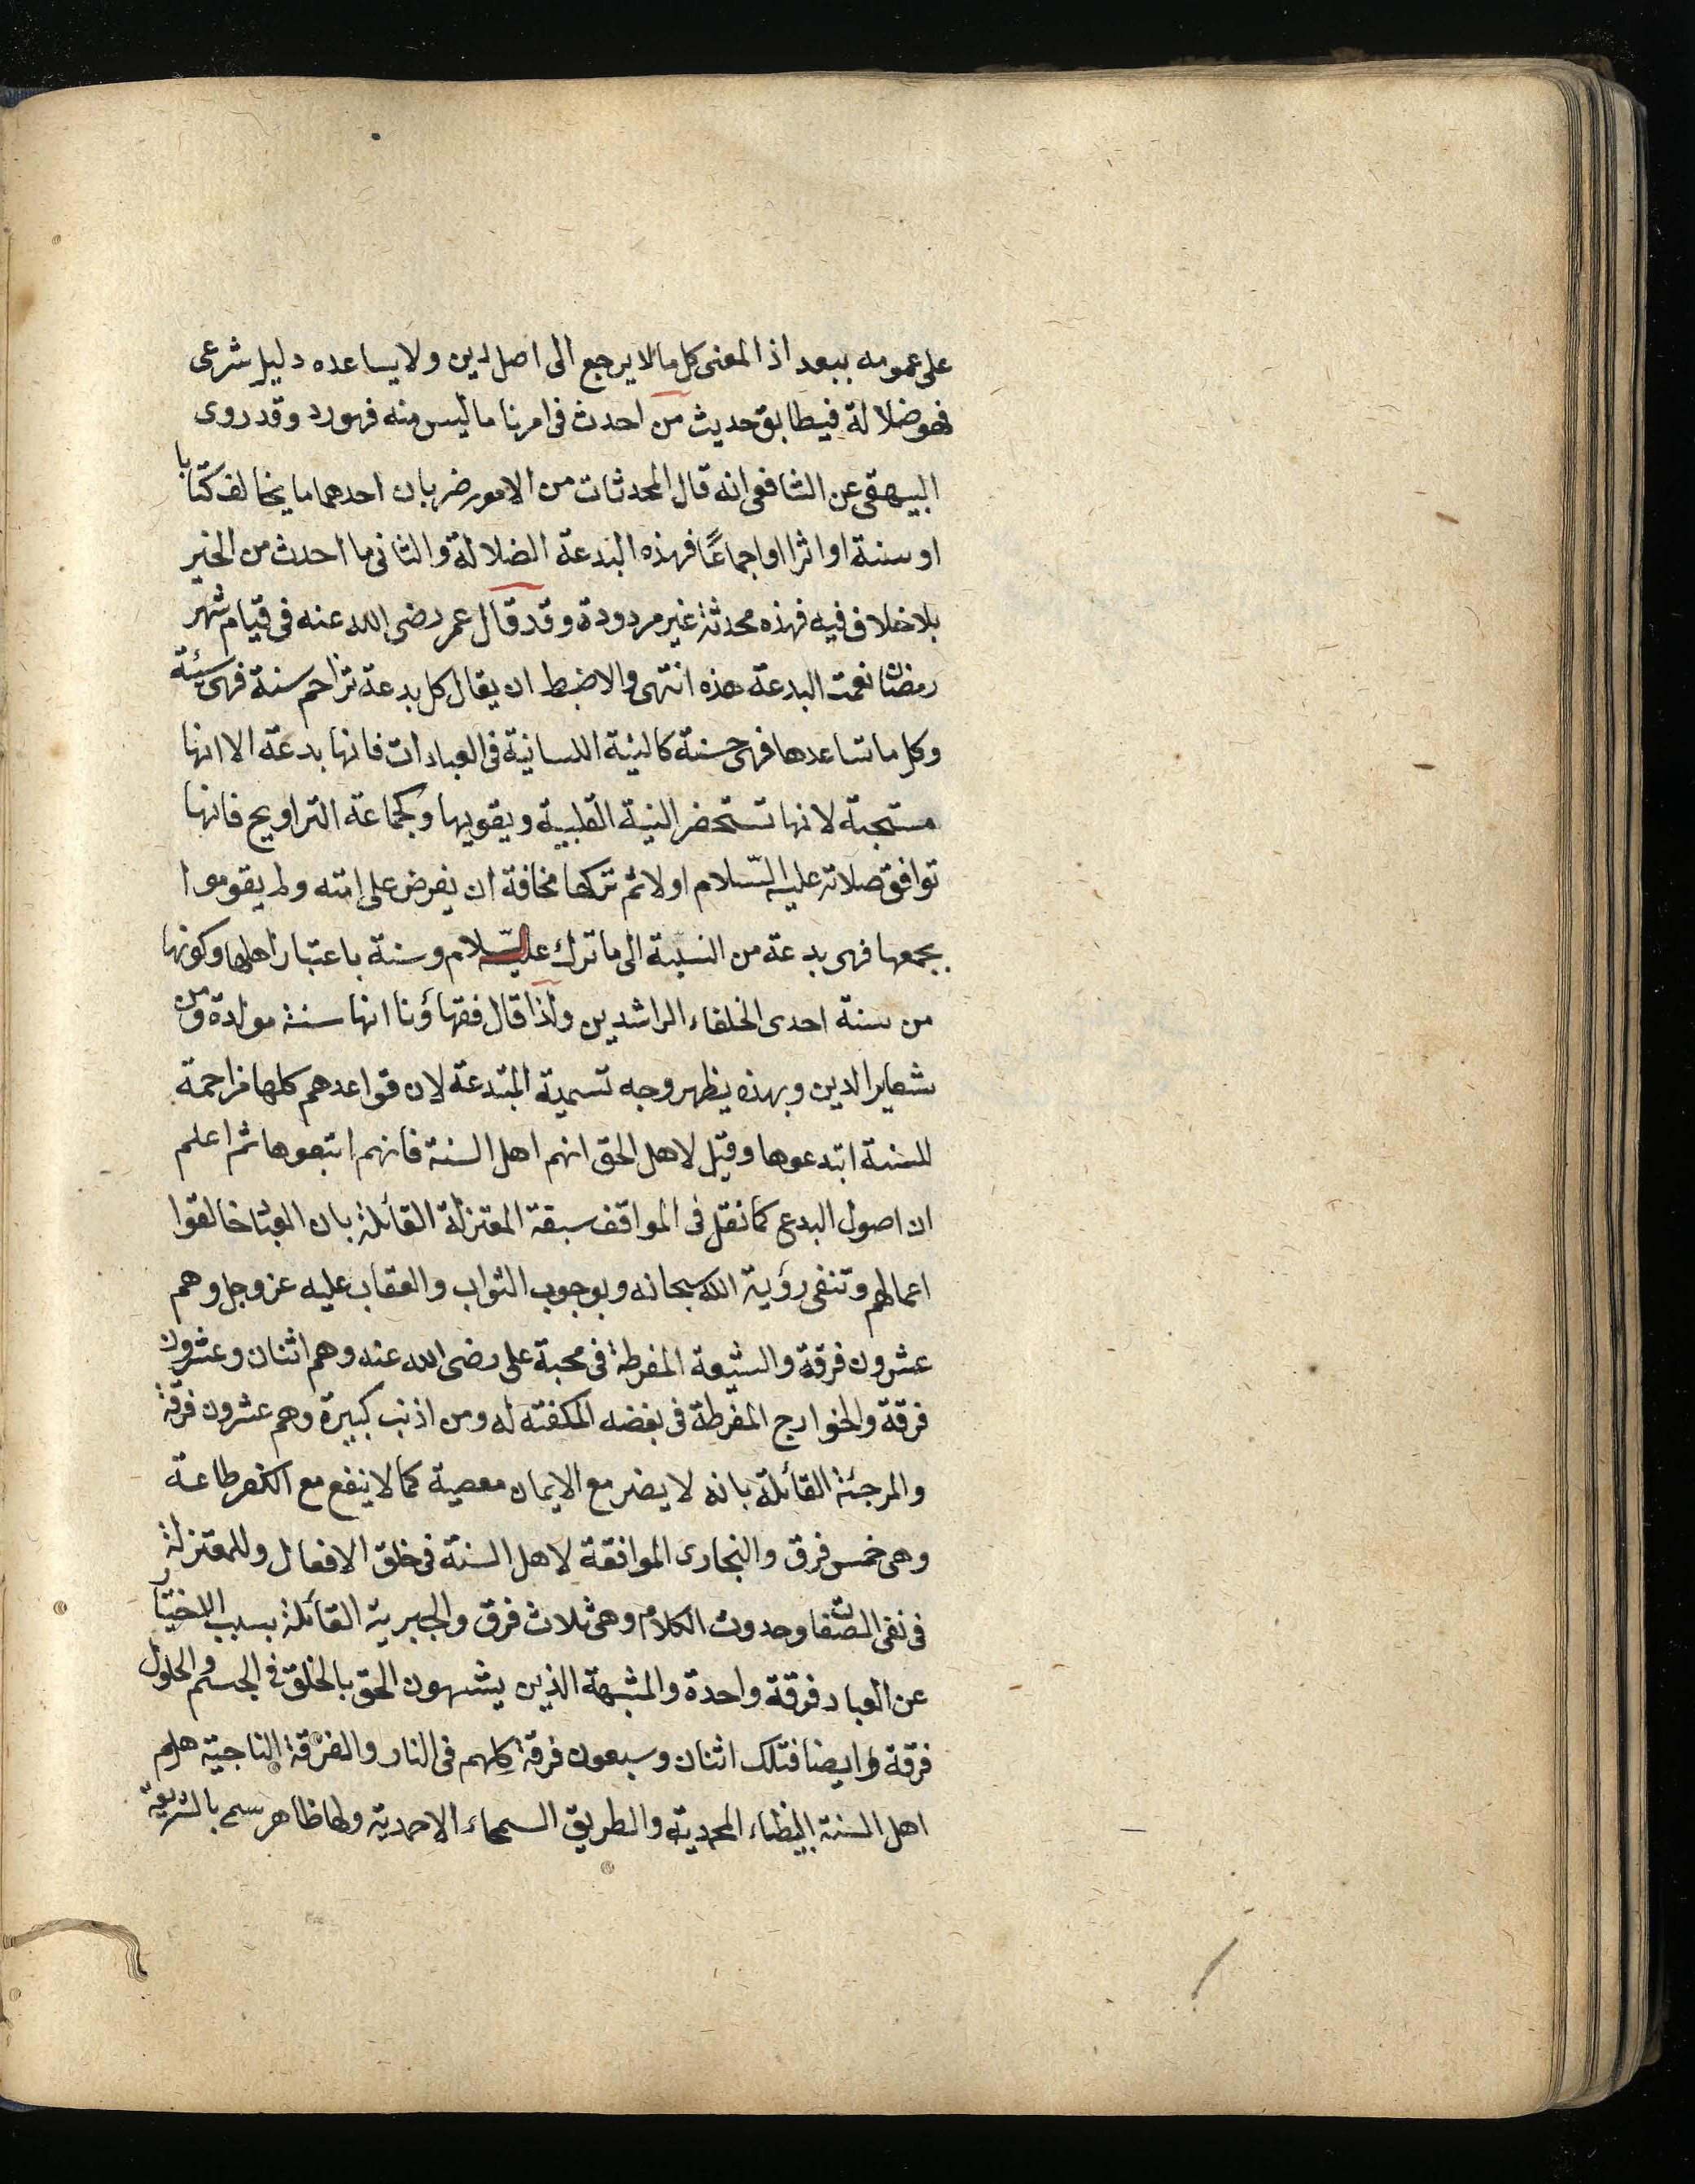 على عمومه يبعد اذ المعنى كل ما لا يرجع الى اصل لدين ولا يساعده دليل شرعى
فهو ضلالة فيطابق حديث من احدث فى امرنا ما ليس منه فهو رد وقد روى
البيهقى عن الشافعى انه قال المحدثات من الامور ضربان احدهما ما يخالف كتابا
او سنة او اثرا او اجماعًا فهذه البدعة الضلالة والثانى ما احدث من الخير
بلا خلاف فيه فهذه محدثة غير مردودة وقد قال عمر رضى الله عنه فى قيام شهر
رمضان نعمت البدعة هذه انتهى والاضبط ان يقال كل بدعة تزاحم سنة فهى سيئة
وكل ما تساعدها فهى حسنة كالنية اللسانية فى العبادات فانها بدعة الا انها
مستحبة لانها تستحضر النية القلبية ويقويها وكجماعة التراويح فانها
توافق صلاته عليه السّلام اولا ثم تركها مخافة ان يفرض على امته ولم يقوموا
بجمعها فهى بدعة من النسبة الى ما ترك عليه السّلام وسنة باعتبار اصلها وكونها
من سنة احدى الخلفاء الراشدين ولذا قال فقهاؤنا انها سنة مولدة ومن
شعاير الدين وبهذه يظهر وجه تسمية المبتدعة لان قواعدهم كلها مزاحمة
للسنة ابتدعوها وقيل لاهل الحق انهم اهل السنة فانهم اتبعوها ثم اعلم
ان اصول البدع كما نقل فى المواقف سبقة المعتزلة القائلة بان العباد خالقوا
اعمالهم وتنفى رؤية الله سبحانه وبوجوب الثواب والعقاب عليه عز وجل وهم
عشرون فرقة والشيعة المفرطة فى محبة على رضى الله عنه وهم اثنان وعشرون
فرقة والخوارج المفرطة فى بغضه المكفته له ومن اذنب كبيرة وهم عشرون فرقة
والمرجئة القائلة بانه لا يضر مع الايمان معصية كما لا ينفع مع الكفر طاعة
وهى خمس فرق والنجارى الموافقة لاهل السنة فى خلق الافعال وللمعتزلة
فى نفى الصّفات وحدوث الكلام وهى ثلاث فرق والجبرية القائلة بسلب الاختيار
عن العباد فرقة واحدة والمشبهة الذين يشبهون الحق بالخلق فى الجسم والحلول
فرقة وايضا فتلك اثنان وسبعون فرقة كلهم فى النار والفرقة الناجية هم
اهل السنة البيضاء المحمدية والطريق السمحاء الاحمدية ولها ظاهر سمى بالشريعة